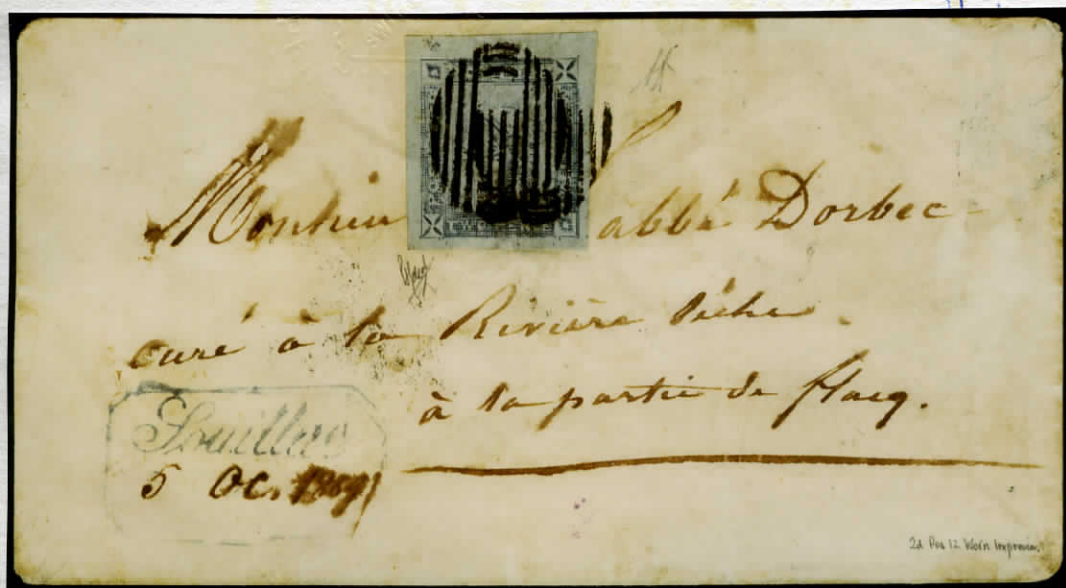 Monsieur L'abbé Dorbec
curé à la Rivière Sèche.
à la partie de flacq.
Souillac
5 Oct 1859
2d Pos 12 Worn Impression